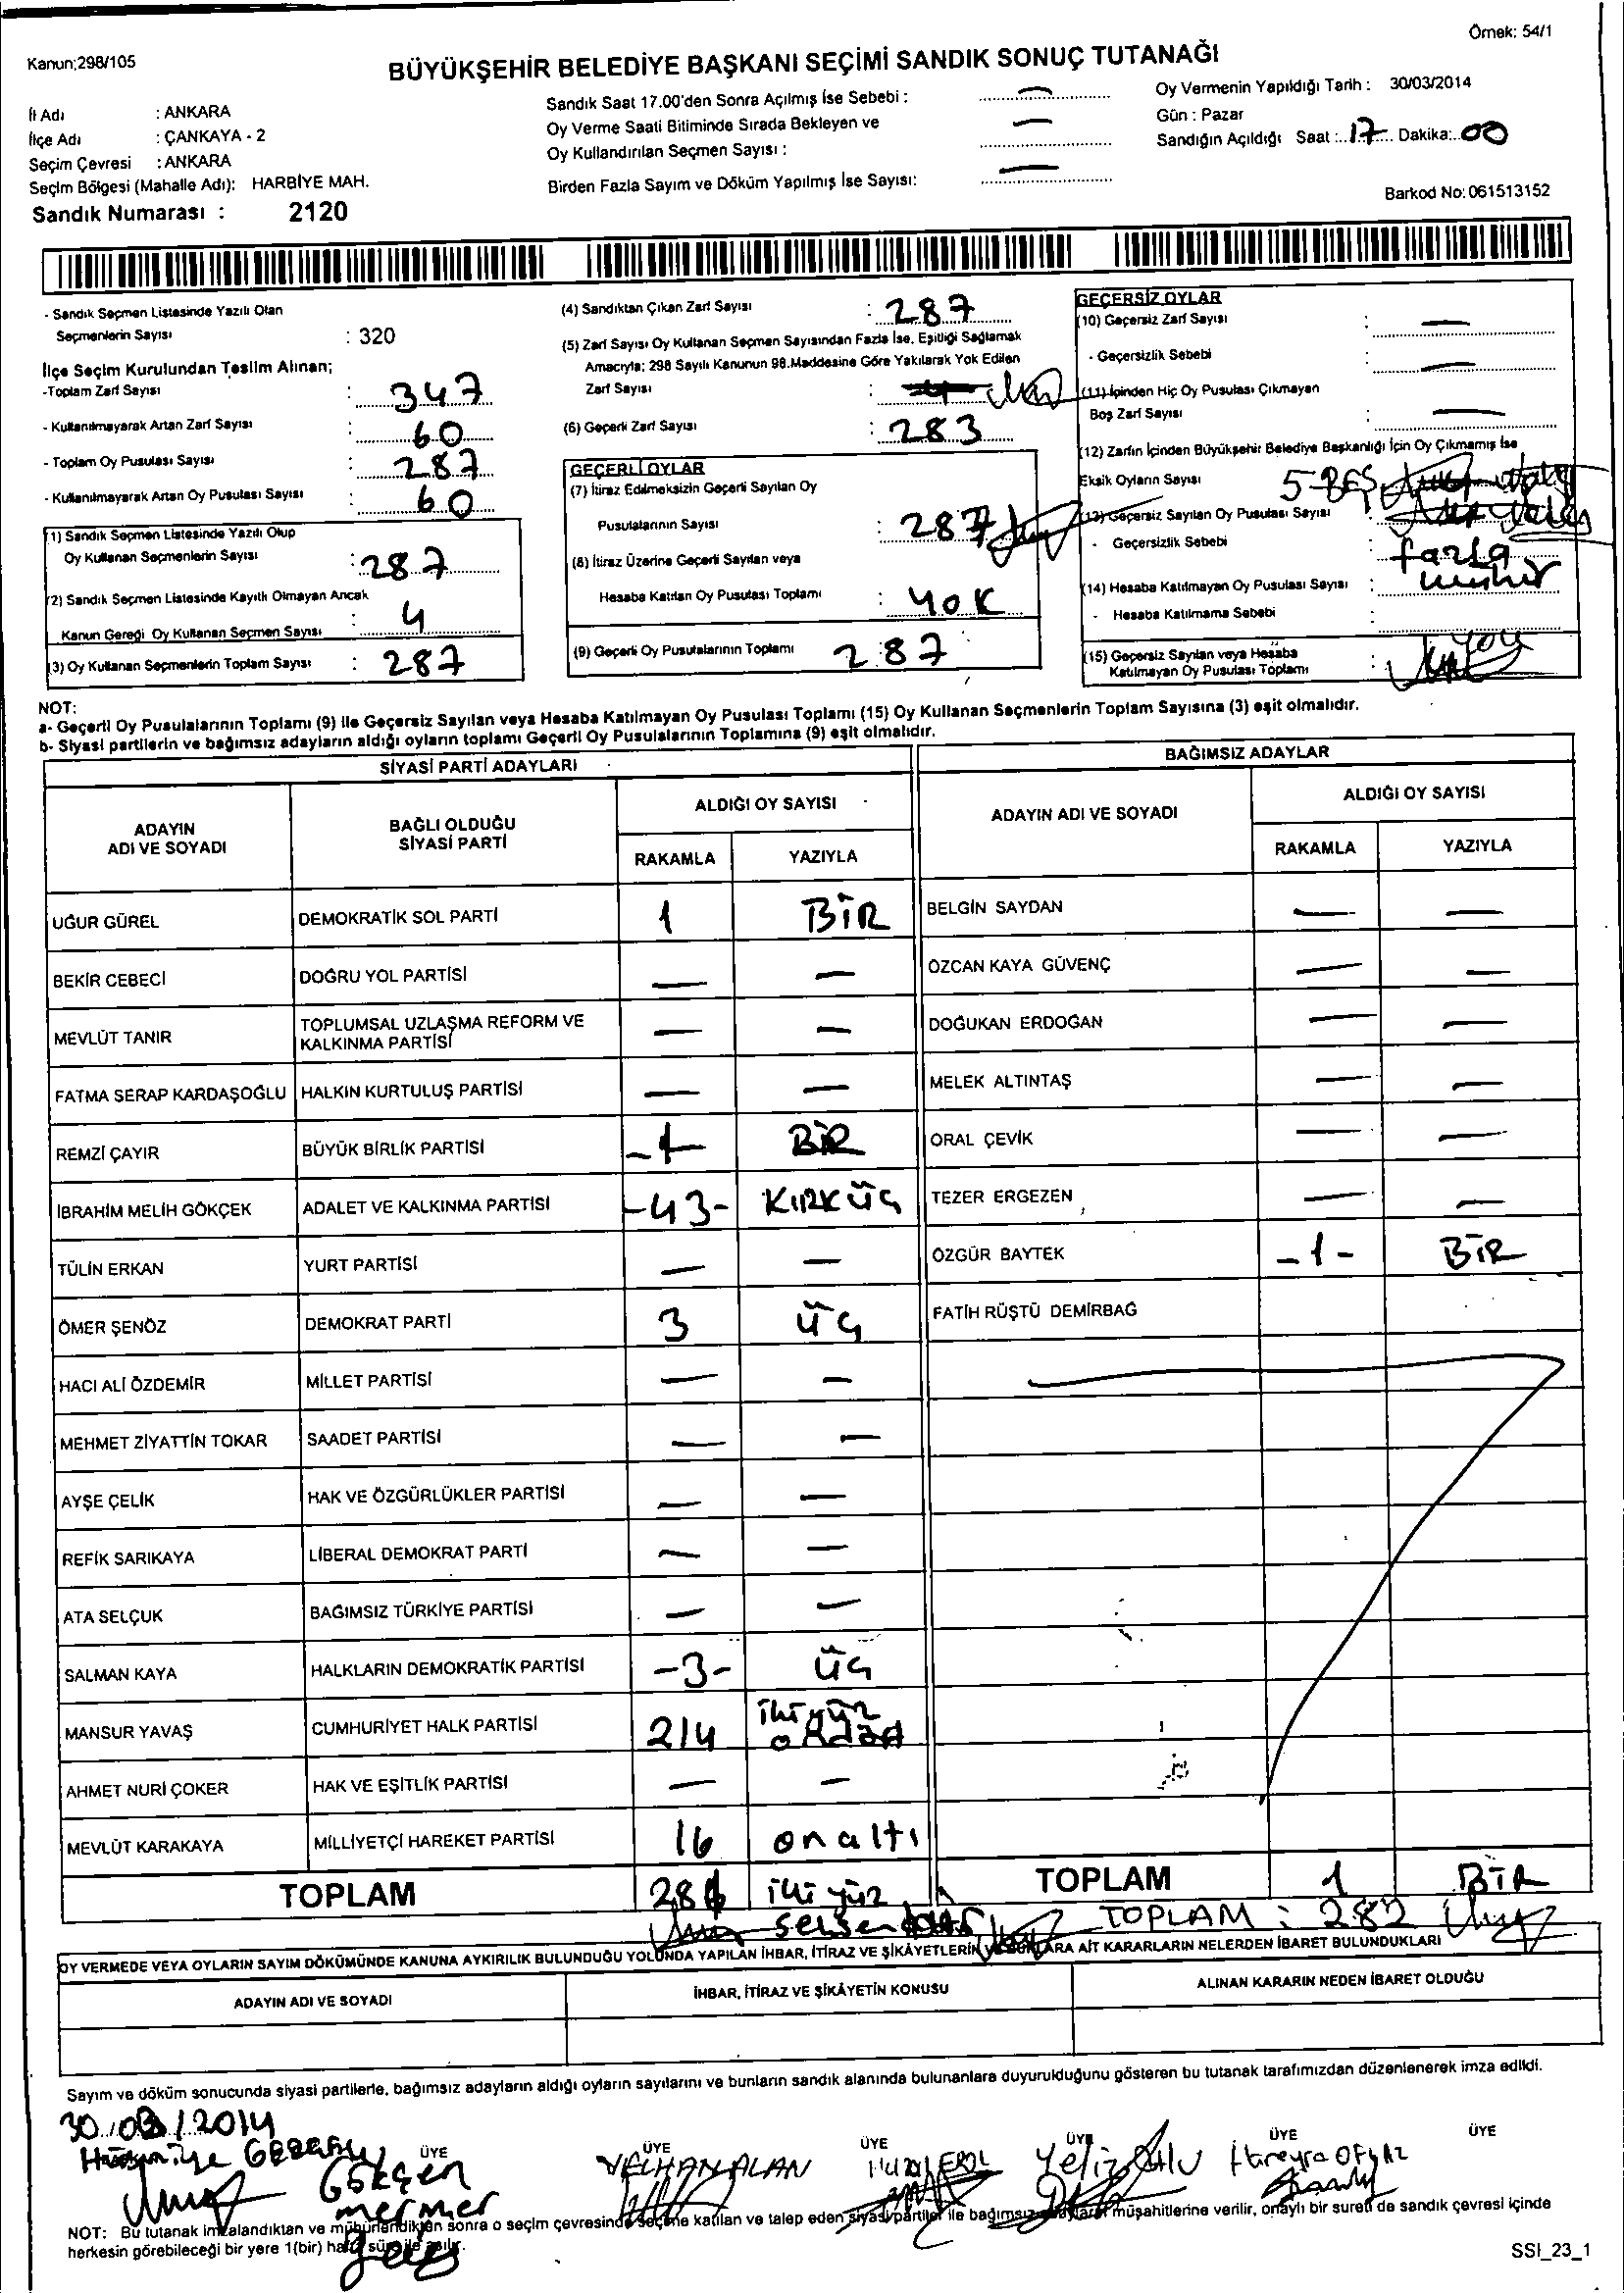 Örnek: 54/1
Kanun;298/105
BÜYÜKŞEHİR BELEDİYE BAŞKANI SEÇİMİ SANDIK SONUÇ TUTANAĞI
İl Adı : ANKARA
İlçe Adı : ÇANKAYA - 2
Seçim Çevresi : ANKARA
Seçim Bölgesi (Mahalle Adı): HARBİYE MAH.
Sandık Numarası : 2120
Sandık Saat 17.00'den Sonra Açılmış İse Sebebi :
Oy Verme Saati Bitiminde Sırada Bekleyen ve
Oy Kullandırılan Seçmen Sayısı :
Birden Fazla Sayım ve Döküm Yapılmış İse Sayısı:
Oy Vermenin Yapıldığı Tarih : 30/03/2014
Gün : Pazar
Sandığın Açıldığı Saat : 17 Dakika: 00
Barkod No: 061513152
- Sandık Seçmen Listesinde Yazılı Olan
Seçmenlerin Sayısı : 320
İlçe Seçim Kurulundan Teslim Alınan;
-Toplam Zarf Sayısı : 347
- Kullanılmayarak Artan Zarf Sayısı : 60
- Toplam Oy Pusulası Sayısı : 287
- Kullanılmayarak Artan Oy Pusulası Sayısı : 60
(1) Sandık Seçmen Listesinde Yazılı Olup
Oy Kullanan Seçmenlerin Sayısı : 287
(2) Sandık Seçmen Listesinde Kayıtlı Olmayan Ancak
Kanun Gereği Oy Kullanan Seçmen Sayısı : 4
(3) Oy Kullanan Seçmenlerin Toplam Sayısı : 287
(4) Sandıktan Çıkan Zarf Sayısı : 287
(5) Zarf Sayısı Oy Kullanan Seçmen Sayısından Fazla İse, Eşitliği Sağlamak
Amacıyla; 298 Sayılı Kanunun 98.Maddesine Göre Yakılarak Yok Edilen
Zarf Sayısı :
(6) Geçerli Zarf Sayısı : 283
GEÇERLİ OYLAR
(7) İtiraz Edilmeksizin Geçerli Sayılan Oy
Pusulalarının Sayısı : 287
(8) İtiraz Üzerine Geçerli Sayılan veya
Hesaba Katılan Oy Pusulası Toplamı : YOK
(9) Geçerli Oy Pusulalarının Toplamı 287
GEÇERSİZ OYLAR
(10) Geçersiz Zarf Sayısı :
- Geçersizlik Sebebi :
(11) İçinden Hiç Oy Pusulası Çıkmayan
Boş Zarf Sayısı :
(12) Zarfın İçinden Büyükşehir Belediye Başkanlığı İçin Oy Çıkmamış İse
Eksik Oyların Sayısı 5-BEŞ
(13) Geçersiz Sayılan Oy Pusulası Sayısı :
- Geçersizlik Sebebi : fazla
mühür
(14) Hesaba Katılmayan Oy Pusulası Sayısı :
- Hesaba Katılmama Sebebi :
(15) Geçersiz Sayılan veya Hesaba
Katılmayan Oy Pusulası Toplamı :
NOT:
a- Geçerli Oy Pusulalarının Toplamı (9) ile Geçersiz Sayılan veya Hesaba Katılmayan Oy Pusulası Toplamı (15) Oy Kullanan Seçmenlerin Toplam Sayısına (3) eşit olmalıdır.
b- Siyasi partilerin ve bağımsız adayların aldığı oyların toplamı Geçerli Oy Pusulalarının Toplamına (9) eşit olmalıdır.
SİYASİ PARTİ ADAYLARI
ADAYIN
ADI VE SOYADI
BAĞLI OLDUĞU
SİYASİ PARTİ
ALDIĞI OY SAYISI
RAKAMLA YAZIYLA
UĞUR GÜREL DEMOKRATİK SOL PARTİ 1 BİR
BEKİR CEBECİ DOĞRU YOL PARTİSİ — —
MEVLÜT TANIR TOPLUMSAL UZLAŞMA REFORM VE
KALKINMA PARTİSİ — —
FATMA SERAP KARDAŞOĞLU HALKIN KURTULUŞ PARTİSİ — —
REMZİ ÇAYIR BÜYÜK BİRLİK PARTİSİ -1- BİR
İBRAHİM MELİH GÖKÇEK ADALET VE KALKINMA PARTİSİ -43- KIRKÜÇ
TÜLİN ERKAN YURT PARTİSİ — —
ÖMER ŞENÖZ DEMOKRAT PARTİ 3 ÜÇ
HACI ALİ ÖZDEMİR MİLLET PARTİSİ — —
MEHMET ZİYATTİN TOKAR SAADET PARTİSİ — —
AYŞE ÇELİK HAK VE ÖZGÜRLÜKLER PARTİSİ — —
REFİK SARIKAYA LİBERAL DEMOKRAT PARTİ — —
ATA SELÇUK BAĞIMSIZ TÜRKİYE PARTİSİ — —
SALMAN KAYA HALKLARIN DEMOKRATİK PARTİSİ -3- ÜÇ
MANSUR YAVAŞ CUMHURİYET HALK PARTİSİ 214 ikiyüz
AHMET NURİ ÇOKER HAK VE EŞİTLİK PARTİSİ — —
MEVLÜT KARAKAYA MİLLİYETÇİ HAREKET PARTİSİ 16 onaltı
TOPLAM ikiyüz
BAĞIMSIZ ADAYLAR
ADAYIN ADI VE SOYADI
ALDIĞI OY SAYISI
RAKAMLA YAZIYLA
BELGİN SAYDAN — —
ÖZCAN KAYA GÜVENÇ — —
DOĞUKAN ERDOĞAN — —
MELEK ALTINTAŞ — —
ORAL ÇEVİK — —
TEZER ERGEZEN — —
ÖZGÜR BAYTEK -1- BİR
FATİH RÜŞTÜ DEMİRBAĞ
TOPLAM 1 BİR
TOPLAM : 282
OY VERMEDE VEYA OYLARIN SAYIM DÖKÜMÜNDE KANUNA AYKIRILIK BULUNDUĞU YOLUNDA YAPILAN İHBAR, İTİRAZ VE ŞİKÂYETLERİN VE BUNLARA AİT KARARLARIN NELERDEN İBARET BULUNDUKLARI
ADAYIN ADI VE SOYADI
İHBAR, İTİRAZ VE ŞİKÂYETİN KONUSU
ALINAN KARARIN NEDEN İBARET OLDUĞU
Sayım ve döküm sonucunda siyasi partilerle, bağımsız adayların aldığı oyların sayılarını ve bunların sandık alanında bulunanlara duyurulduğunu gösteren bu tutanak tarafımızdan düzenlenerek imza edildi.
30/03/2014
ÜYE ÜYE ÜYE ÜYE ÜYE ÜYE
Gökçen
mermer
VELİHAN ALAN
EROL
Yeliz
NOT: Bu tutanak imzalandıktan ve mühürlendikten sonra o seçim çevresinde seçime katılan ve talep eden siyasi partiler ile bağımsız adayların müşahitlerine verilir, onaylı bir sureti de sandık çevresi içinde
herkesin görebileceği bir yere 1(bir) hafta süre ile asılır.
SSI_23_1